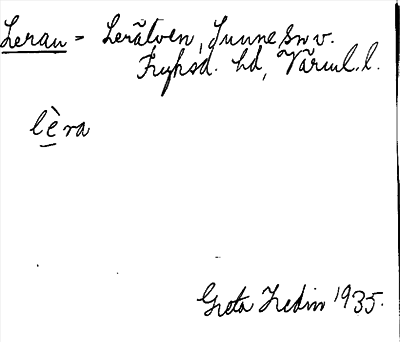 Leran = Lerälven, Sunne sn v.
Fryksd. hd, Värml. l.
lèra
Greta Hedin 1935.